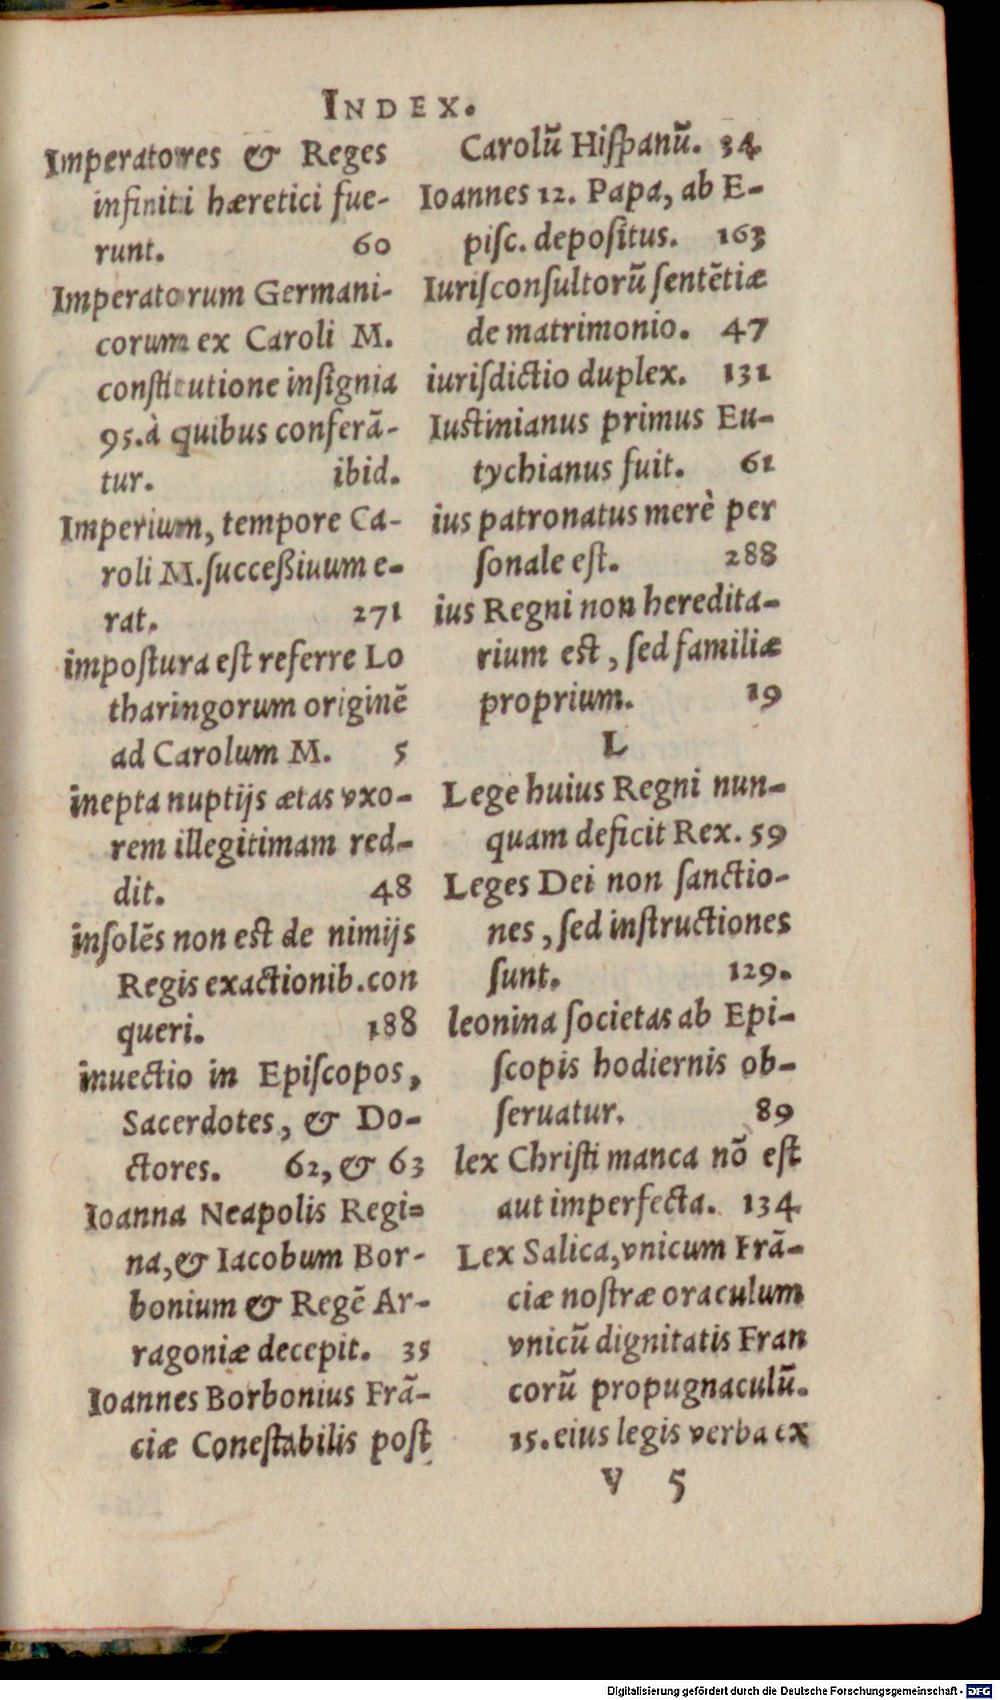 INDEX.
Imperatores & Reges
infiniti hæretici fue-
runt. 60
Imperatorum Germani-
corum ex Caroli M.
constitutione insignia
95. à quibus conferā-
tur. ibid.
Imperium, tempore Ca-
roli M. succeßiuum e-
rat. 271
impostura est referre Lo
tharingorum originē
ad Carolum M. 5
inepta nuptijs ætas vxo-
rem illegitimam red-
dit. 48
insolēs non est de nimijs
Regis exactionib. con
queri. 188
inuectio in Episcopos,
Sacerdotes, & Do-
ctores. 62, & 63
Ioanna Neapolis Regi-
na, & Iacobum Bor-
bonium & Regē Ar-
ragoniæ decepit. 35
Ioannes Borbonius Frā-
ciæ Conestabilis post
Carolū Hispanū. 34
Ioannes 12. Papa, ab E-
pisc. depositus. 163
Iurisconsultorū sentētiæ
de matrimonio. 47
iurisdictio duplex. 131
Iustinianus primus Eu-
tychianus fuit. 61
ius patronatus merè per
sonale est. 288
ius Regni non heredita-
rium est, sed familiæ
proprium. 19
L
Lege huius Regni nun-
quam deficit Rex. 59
Leges Dei non sanctio-
nes, sed instructiones
sunt. 129.
leonina societas ab Epi-
scopis hodiernis ob-
seruatur. 89
lex Christi manca nō est
aut imperfecta. 134
Lex Salica, vnicum Frā-
ciæ nostræ oraculum
vnicū dignitatis Fran
corū propugnaculū.
15. eius legis verba ex
V 5
Digitalisierung gefördert durch die Deutsche Forschungsgemeinschaft - DFG